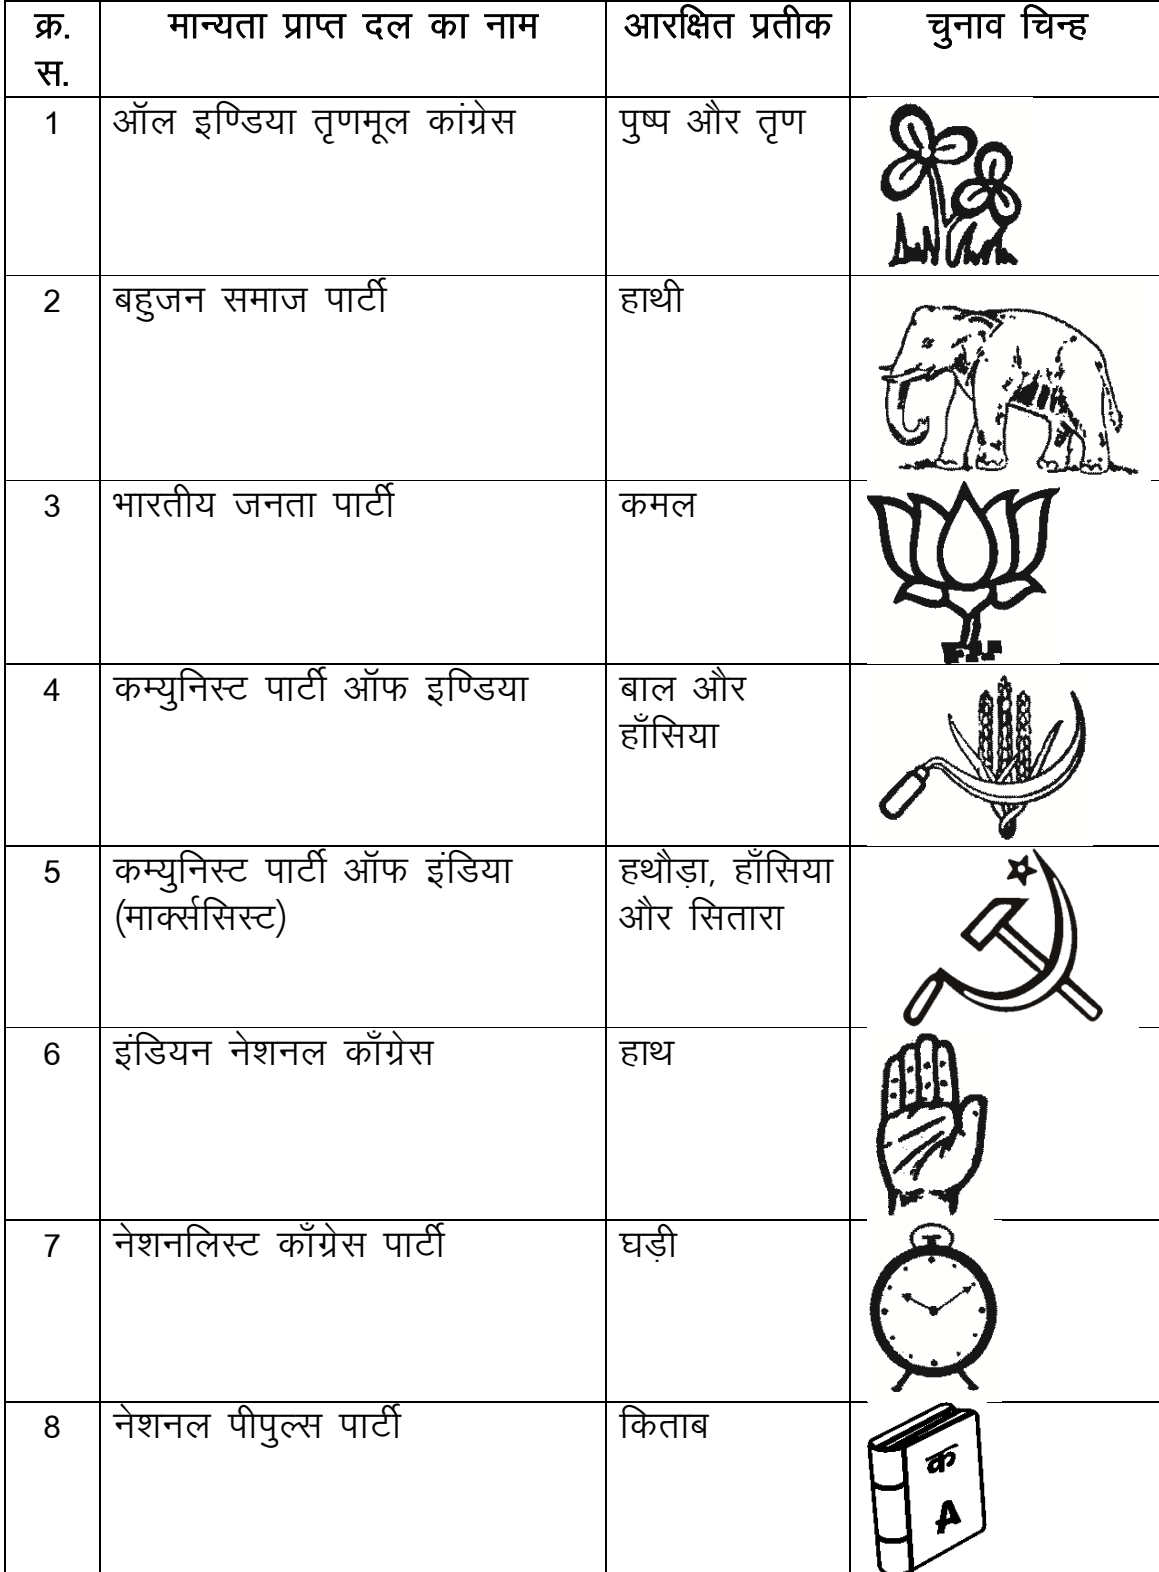 क्र. स. मान्यता प्राप्त दल का नाम आरक्षित प्रतीक चुनाव चिन्ह
1 ऑल इण्डिया तृणमूल कांग्रेस पुष्प और तृण
2 बहुजन समाज पार्टी हाथी
3 भारतीय जनता पार्टी कमल
4 कम्युनिस्ट पार्टी ऑफ इण्डिया बाल और
हाँसिया
5 कम्युनिस्ट पार्टी ऑफ इंडिया हथौड़ा, हाँसिया
(मार्क्ससिस्ट) और सितारा
6 इंडियन नेशनल काँग्रेस हाथ
7 नेशनलिस्ट काँग्रेस पार्टी घड़ी
8 नेशनल पीपुल्स पार्टी किताब
क
A